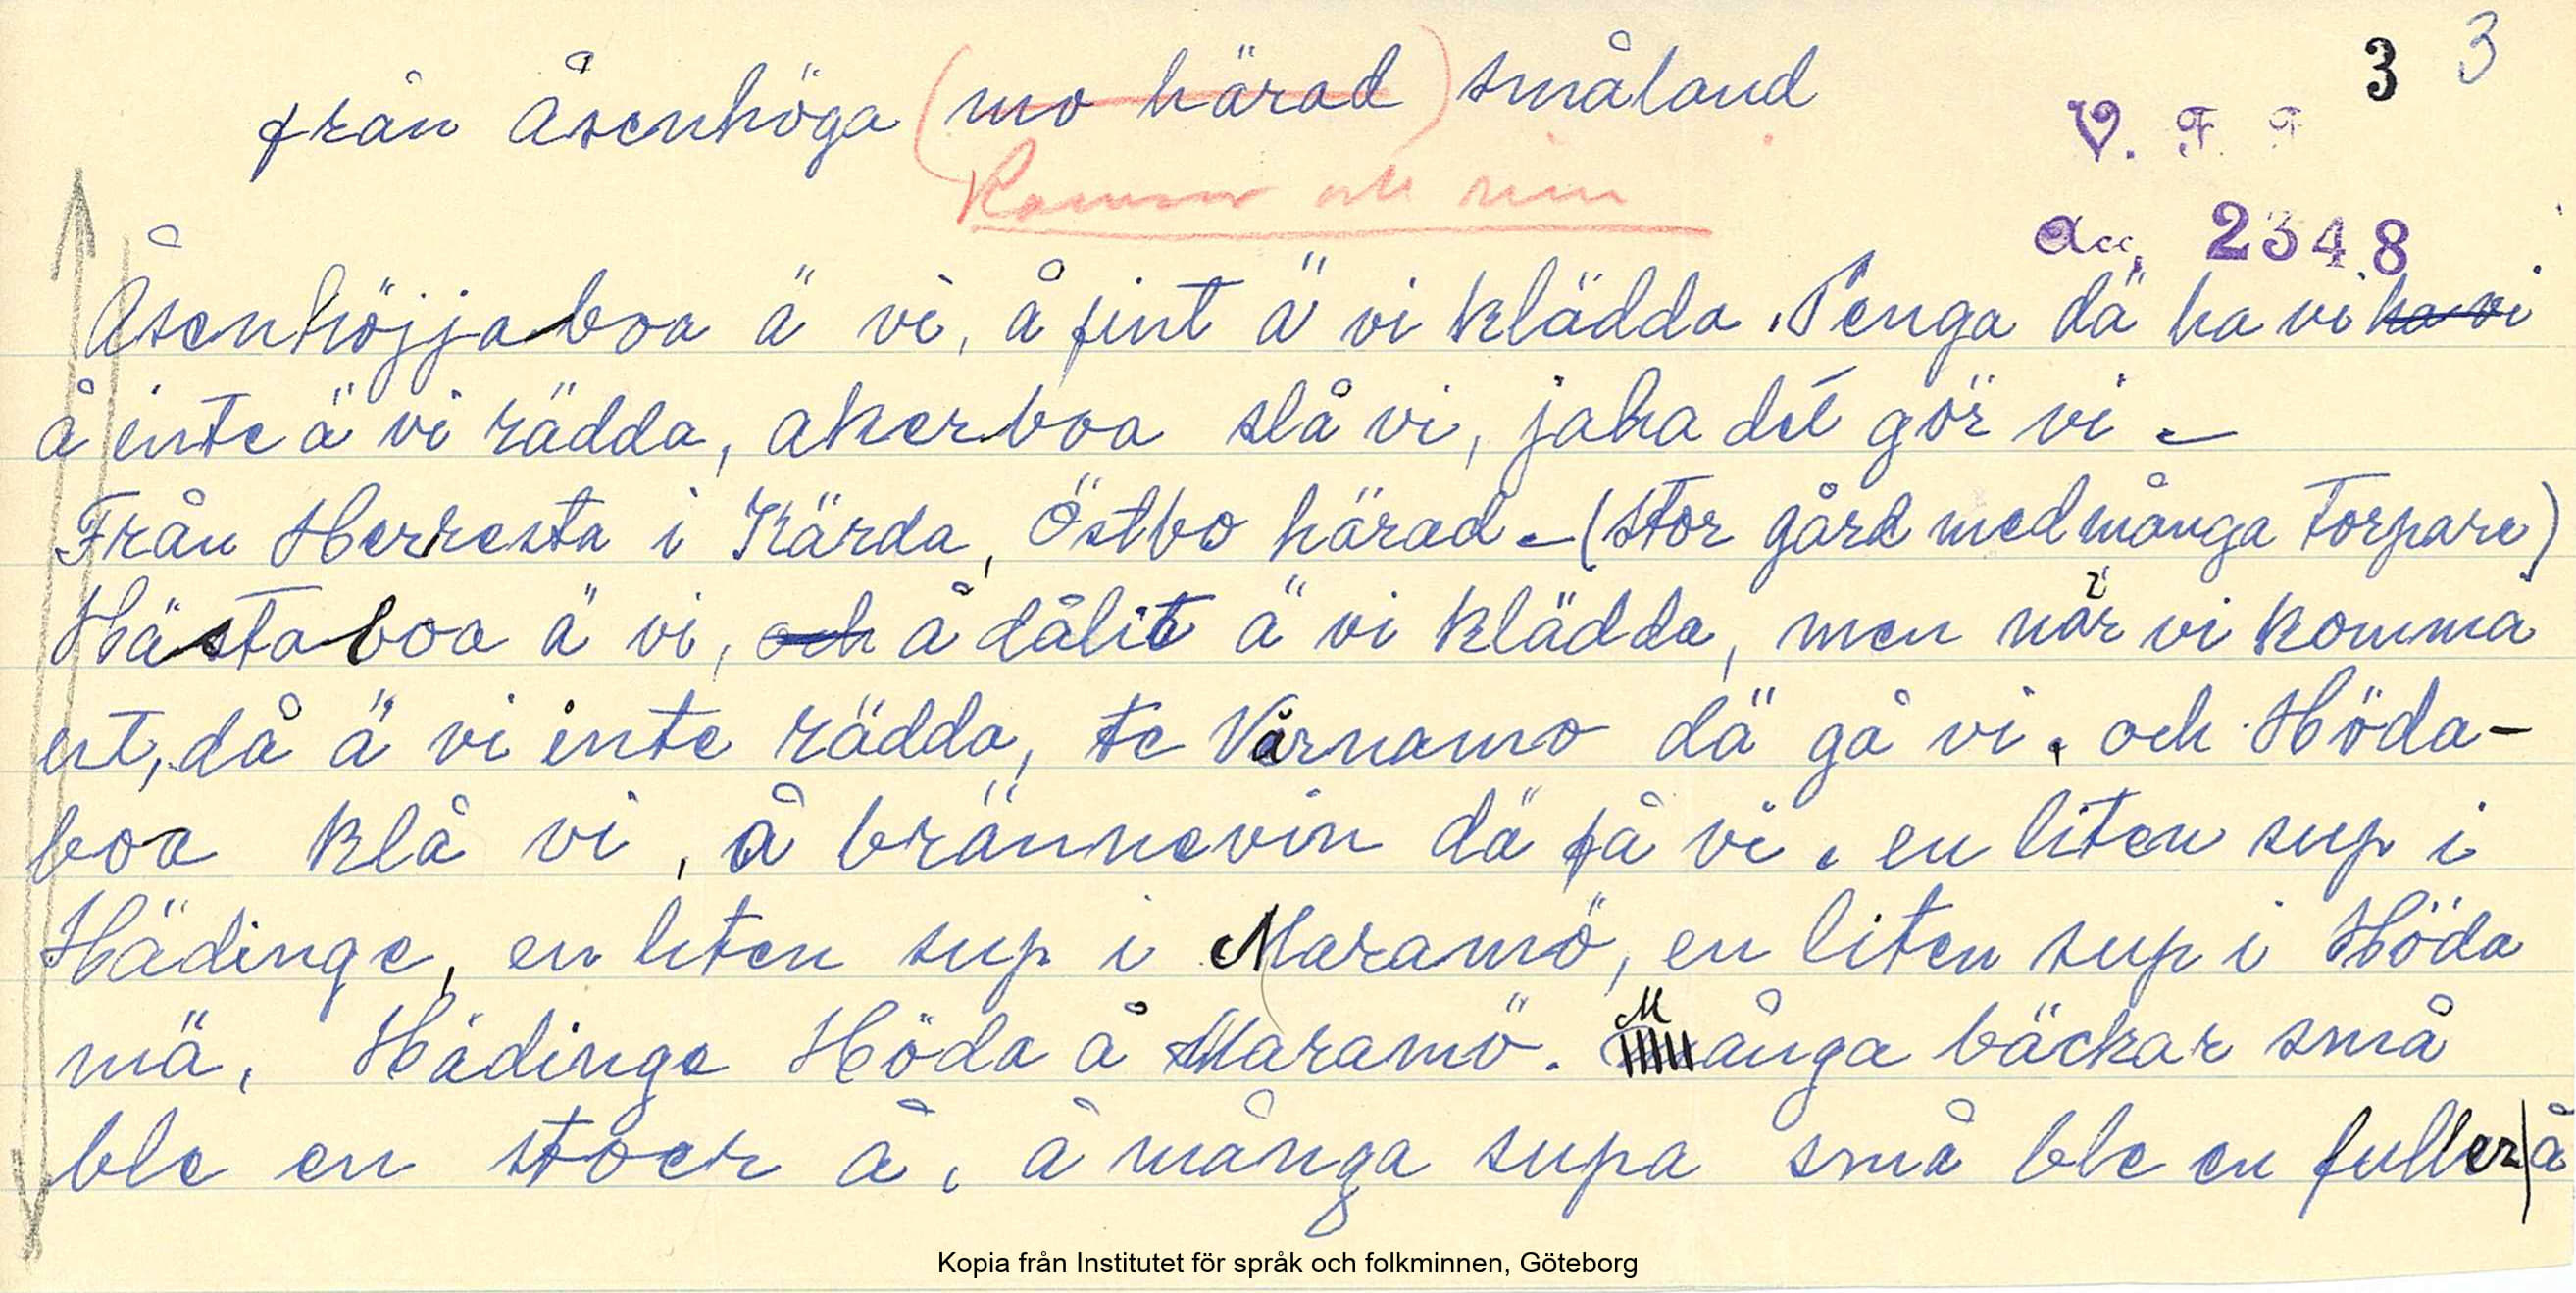 3 3
från Åsenhöga (mo härad) småland
V. F. F.
Ramsor och rim
Acc. 2348
Åsenhöjjaboa ä vi, å fint ä vi klädda. Penga dä ha vi ha vi
å inte ä vi rädda, akerboa slå vi, jaha dét gör vi –
Från Herresta i Kärda, Östbo härad – (stor gård med många torpare)
Hästaboa ä vi, och å dålit ä vi klädda, men når vi komma
ut, då ä vi inte rädda, te Värnamo dä gå vi. och Höda-
boa klå vi, å brännevin dä få vi. en liten sup i
Hädinge, en liten sup i Maramö, en liten sup i Höda
mä, Hädinge Höda å Maramö. Många bäckar små
ble en stoer å, å många supa små ble en fuller å
Kopia från Institutet för språk och folkminnen, Göteborg